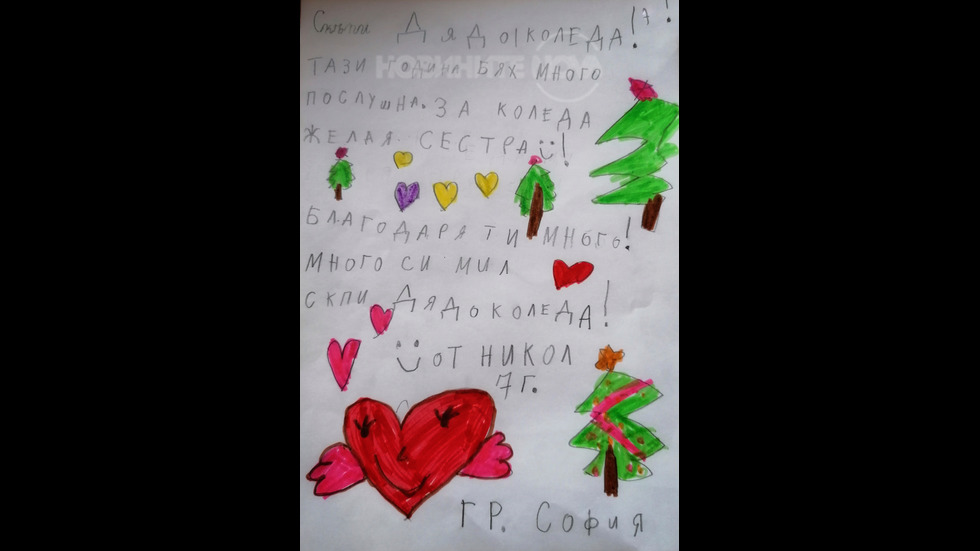 Скъпи Дядо КОЛЕДА!
ТАЗИ ГОДИНА БЯХ МНОГО
ПОСЛУШНА. ЗА КОЛЕДА
ЖЕЛАЯ СЕСТРА!
БЛАГОДАРЯ ТИ МНОГО!
МНОГО СИ МИЛ
СКПИ ДЯДО КОЛЕДА!
ОТ НИКОЛ
7 Г.
ГР. СОФИЯ